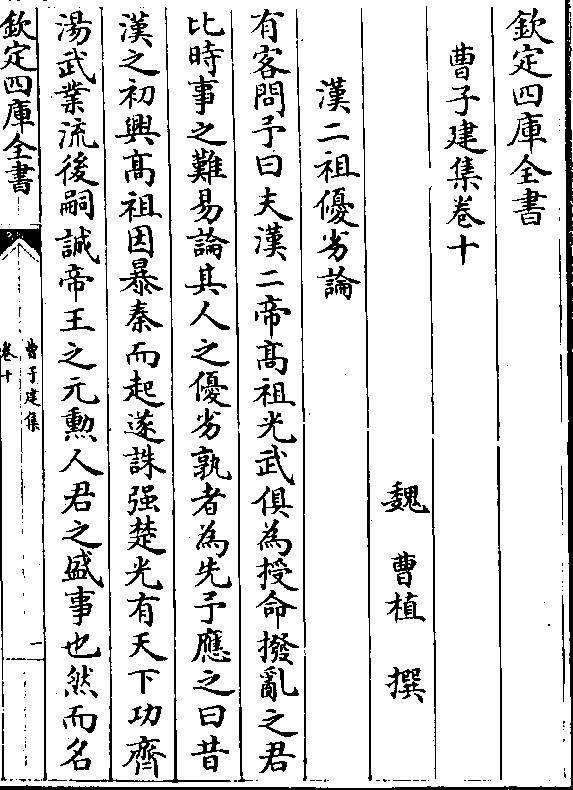 欽定四庫全書
曹子建集卷十
魏 曹植 撰
漢二祖優劣論
有客問予曰夫漢二帝髙祖光武俱為授命撥亂之君
比時事之難易論其人之優劣孰者為先予應之曰昔
漢之初興髙祖因暴秦而起遂誅强楚光有天下功齊
湯武業流後嗣誠帝王之元勲人君之盛事也然而名
欽定四庫全書
曹子建集
卷十
一